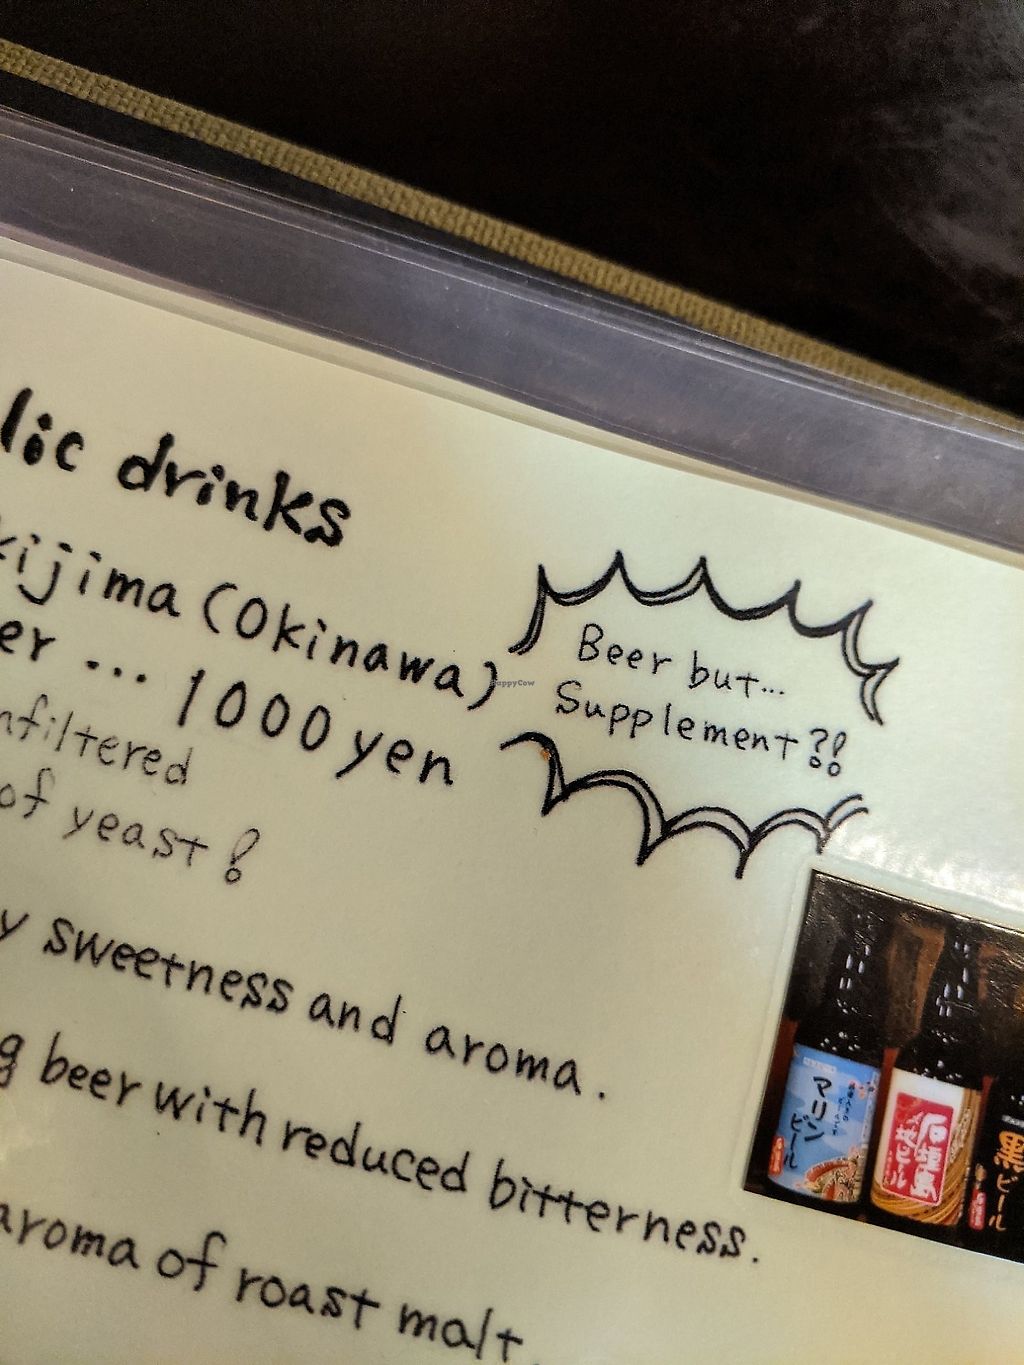 lic drinks
kijima (Okinawa)
er ... 1000 yen
nfiltered
of yeast!
Beer but...
Supplement?!
y sweetness and aroma.
g beer with reduced bitterness.
aroma of roast malt.
マリンビール
石垣島
地ビール
黒ビール
HappyCow